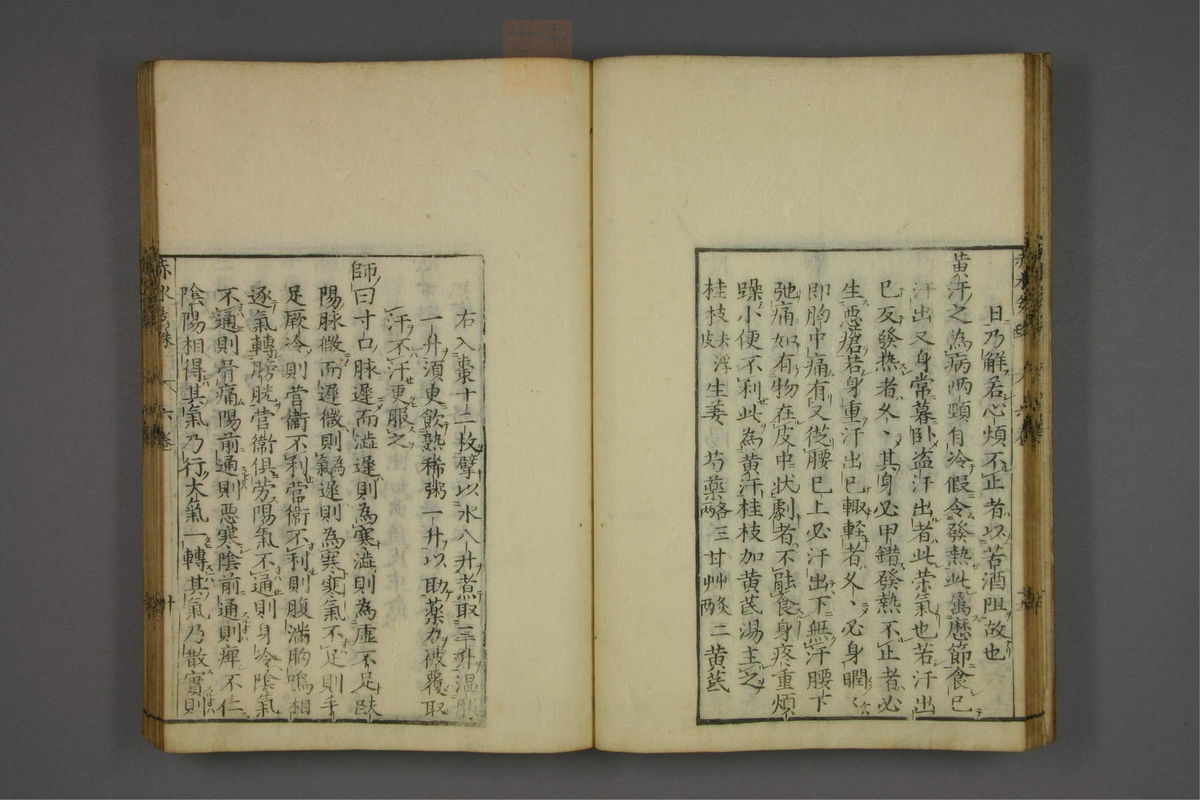 日乃解若心煩不止者以苦酒阻故也
黄汗之為病兩頸自冷假令發熱此屬歷節食已
汗出又身常暮卧盗汗出者此荣氣也若汗出
已反發熱者久、其身必甲錯發熱不止者必
生惡瘡若身重汗出已輙輕者久、必身瞤
即胸中痛有又從腰已上必汗出下無汗腰下
弛痛如有物在皮中状劇者不能食身疼重煩
躁小便不利此為黄汗桂枝加黄芪湯主之
桂枝去浮皮 生姜 芍藥各三两 甘艸炙二两 黄芪
右入棗十二枚擘以水八升煮取三升温服
一升須臾飲熱稀粥一升以助藥力被覆取
汗不汗更服之
師曰寸口脉遲而澁遲則為寒澁則為虚不足趺
陽脉微而遲微則為氣遲則為寒寒氣不足則手
足厥冷則营衛不利营衛不利則腹满胸鳴相
逐氣轉膀胱营衛俱劳陽氣不通則身冷陰氣
不通則骨痛陽前通則惡寒陰前通則痺不仁
陰陽相得其氣乃行大氣一轉其氣乃散實則